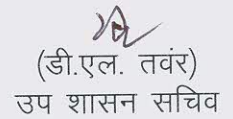 (डी.एल. तवंर)
उप शासन सचिव